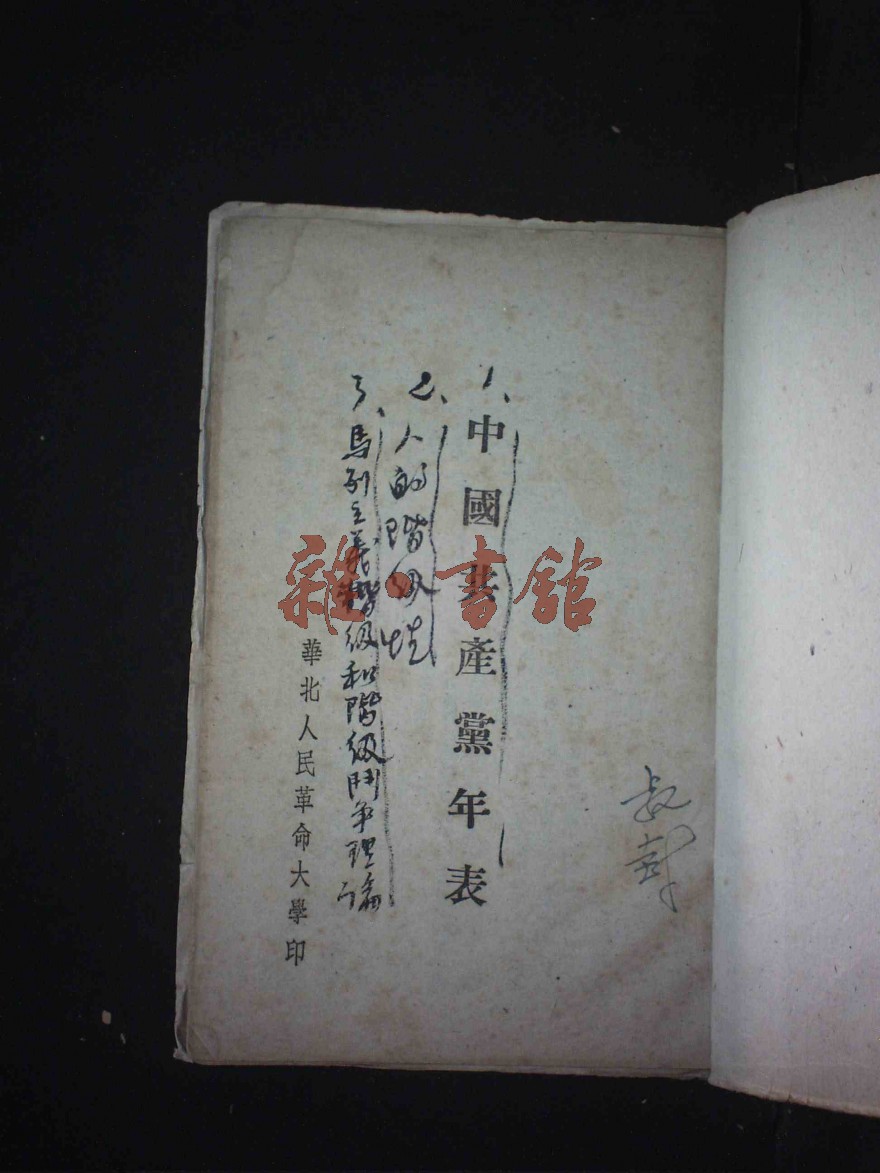 1、中國共產黨年表
2、人的階级性
3、馬列主義階级和階级鬥争理論
華北人民革命大學印
雜·書館